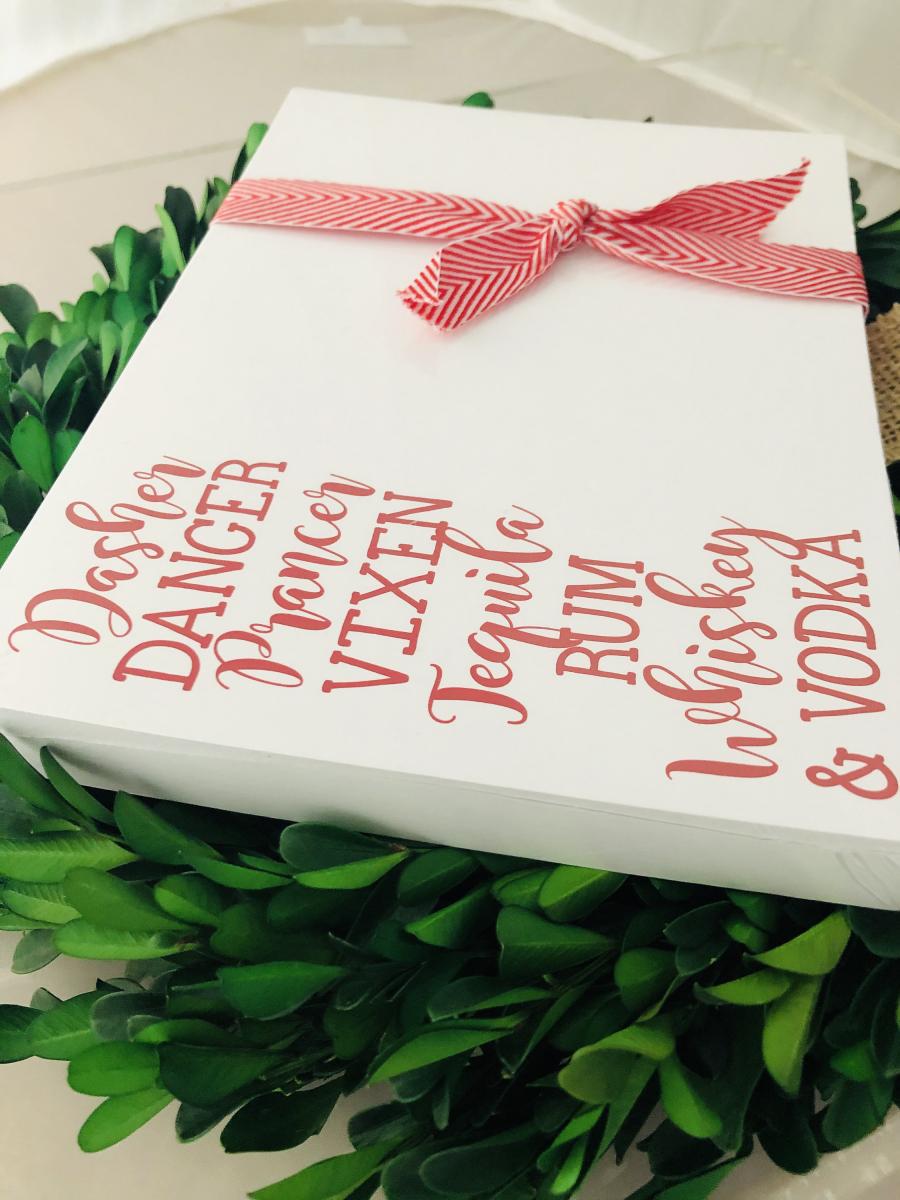 Dasher
DANCER
Prancer
VIXEN
Tequila
RUM
Whiskey
& VODKA